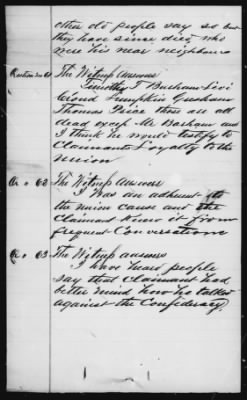 other old people say so but
they have since died who
were his near neighbours
Question No 61 The Witness answers
Timothy T Barham Levi
Cloud Lumpkin Gresham
Thomas Price they are all
dead except Mr Barham and
I think he would testify to
Claimants Loyalty to the
Union
" " 62 The Witness answers
I was an adherent to
the union cause and the
Claimant Knew it from
frequent Conversations
" " 63 The Witness answers
I have heard people
say that Claimant had
better mind how he talked
against the Confederacy